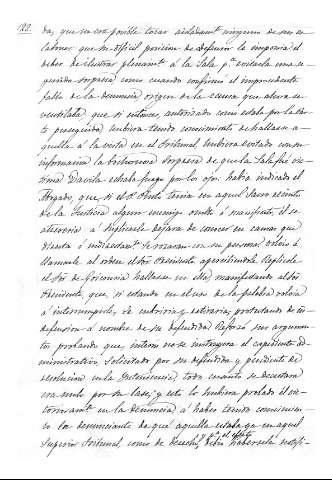 122.
da, que no era posible tocar aisladamt. ninguno de sus es-
labones que su difícil posicion de defensor le imponia el
deber de ilustrar plenamt. a la Sala pa. evitarla una se-
gunda sorpresa como cuando confirmó el imprudente
fallo de la denuncia origen de la causa que ahora se
ventilaba, que si entonces, autorizado como estaba por la par-
te perseguida hubiera tenido conocimiento de hallarse a-
quella á la vista en el Tribunal hubiera evitado con su
informacion la bochornosa sorpresa de que la Sala fué víc-
tima Davila echaba fuego por los ojos: había indicado el
Abogado, que, si el Conde tenia en aquel Sacro recinto
de la Justicia algun enemigo oculto ó manifiesto, él se
atrevería á suplicarle dejara de conocer en causas que
directa ó indirectamt. se rozaran con su persona volvió á
llamarle al orden el Sor. Presidente apercibiéndole Replicole
el Sor. de Goicouria hallarse en ella, manifestando al Sor.
Presidente que, si estando en el uso de la palabra volvia
á interrumpirle, se cubriria y retiraria, protestando de in-
defension á nombre de su defendida Reforzó sus argumen-
tos probando que, interin no se instruyera el expediente ad-
ministrativo, solicitado por su defendida y pendiente de
resolucion en la Intendencia, todo cuanto se decretara
era nulo por su base; y esto lo hubiera probado él vic-
toriosamt. en la denuncia á haber tenido conocimien-
to la denunciante de que aquella estaba ya en aquel
Superior Tribunal, como de Derecho, pa. el efecto debio habersela notifi-